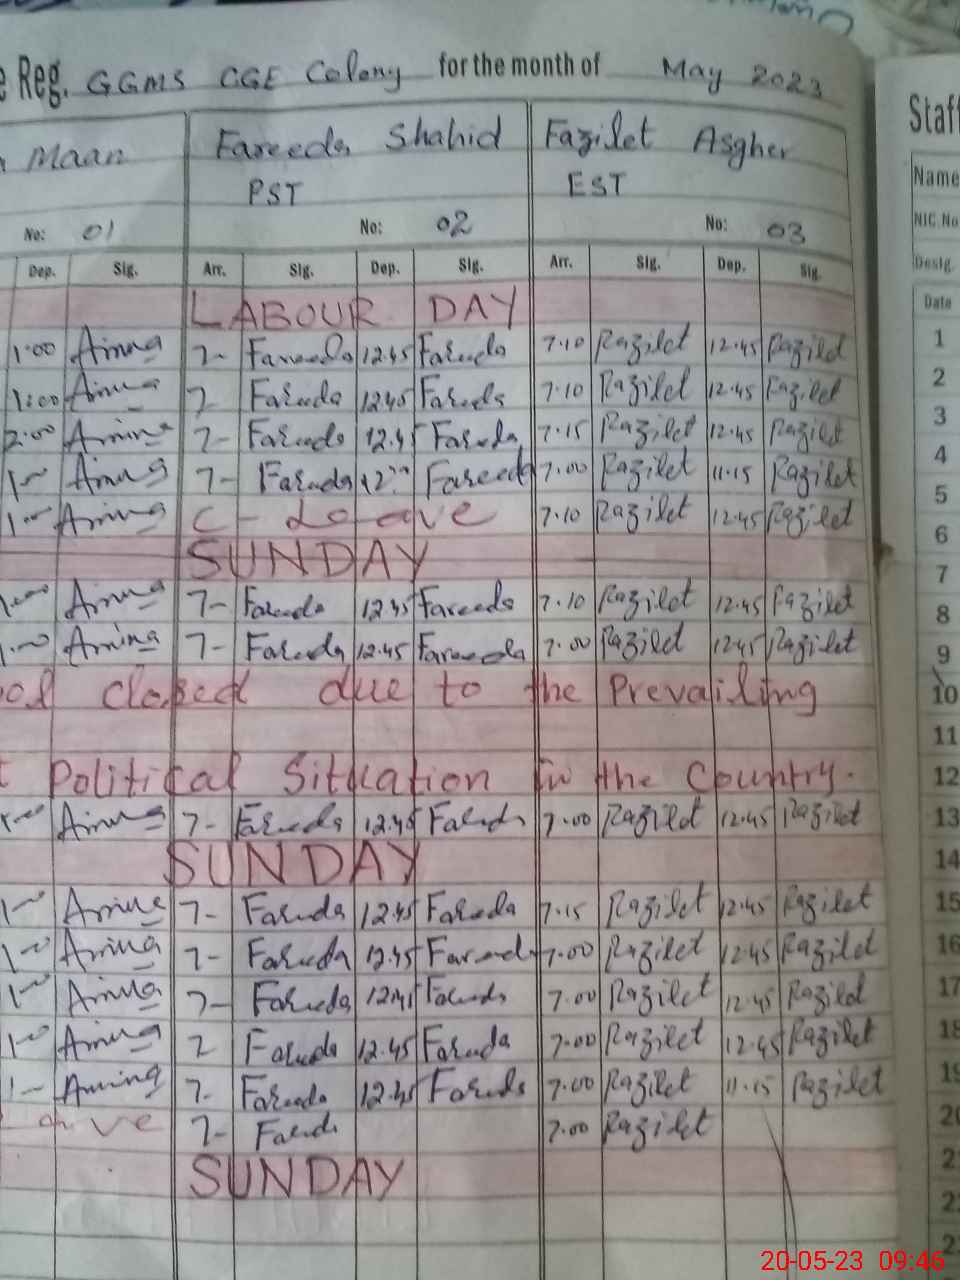 e Reg. GGMS CGE Colony for the month of May 2023
Maan Fareeda Shahid Fazilet Asgher
PST EST
No: 01 No: 02 No: 03
Dep. Sig. Arr. Sig. Dep. Sig. Arr. Sig. Dep. Sig.
LABOUR DAY
1:00 Amina 7- Fareeda 12.45 Fareeda 7.10 Razilet 12.45 Razilet
1:00 Amina 7- Fareeda 12.45 Fareeda 7.10 Razilet 12.45 Razilet
2:00 Amina 7- Fareeda 12.45 Fareeda 7.15 Razilet 12.45 Razilet
Amina 7- Fareeda Fareeda 7.00 Razilet 11.15 Razilet
Amina C- Leave 7.10 Razilet 12.45 Razilet
SUNDAY
Amina 7- Fareeda 12.45 Fareeda 7.10 Razilet 12.45 Razilet
Amina 7- Fareeda 12.45 Fareeda 7.00 Razilet 12.45 Razilet
ol closed due to the Prevailing
t Political Situation in the Country.
Amina 7- Fareeda 12.45 Fareeda 7.00 Razilet 12.45 Razilet
SUNDAY
Amina 7- Fareeda 12.45 Fareeda 7.15 Razilet 12.45 Razilet
Amina 7- Fareeda 12.45 Fareeda 7.00 Razilet 12.45 Razilet
Amina 7- Fareeda 12.45 Fareeda 7.00 Razilet 12.45 Razilet
Amina 7 Fareeda 12.45 Fareeda 7.00 Razilet 12.45 Razilet
Amina 7- Fareeda 12.45 Fareeda 7.00 Razilet 11.15 Razilet
ave 7- Fareeda 7.00 Razilet
SUNDAY
Staff
Name
NIC. No
Desig.
Date
1
2
3
4
5
6
7
8
9
10
11
12
13
14
15
16
17
18
19
20
21
22
2
20-05-23 09:46